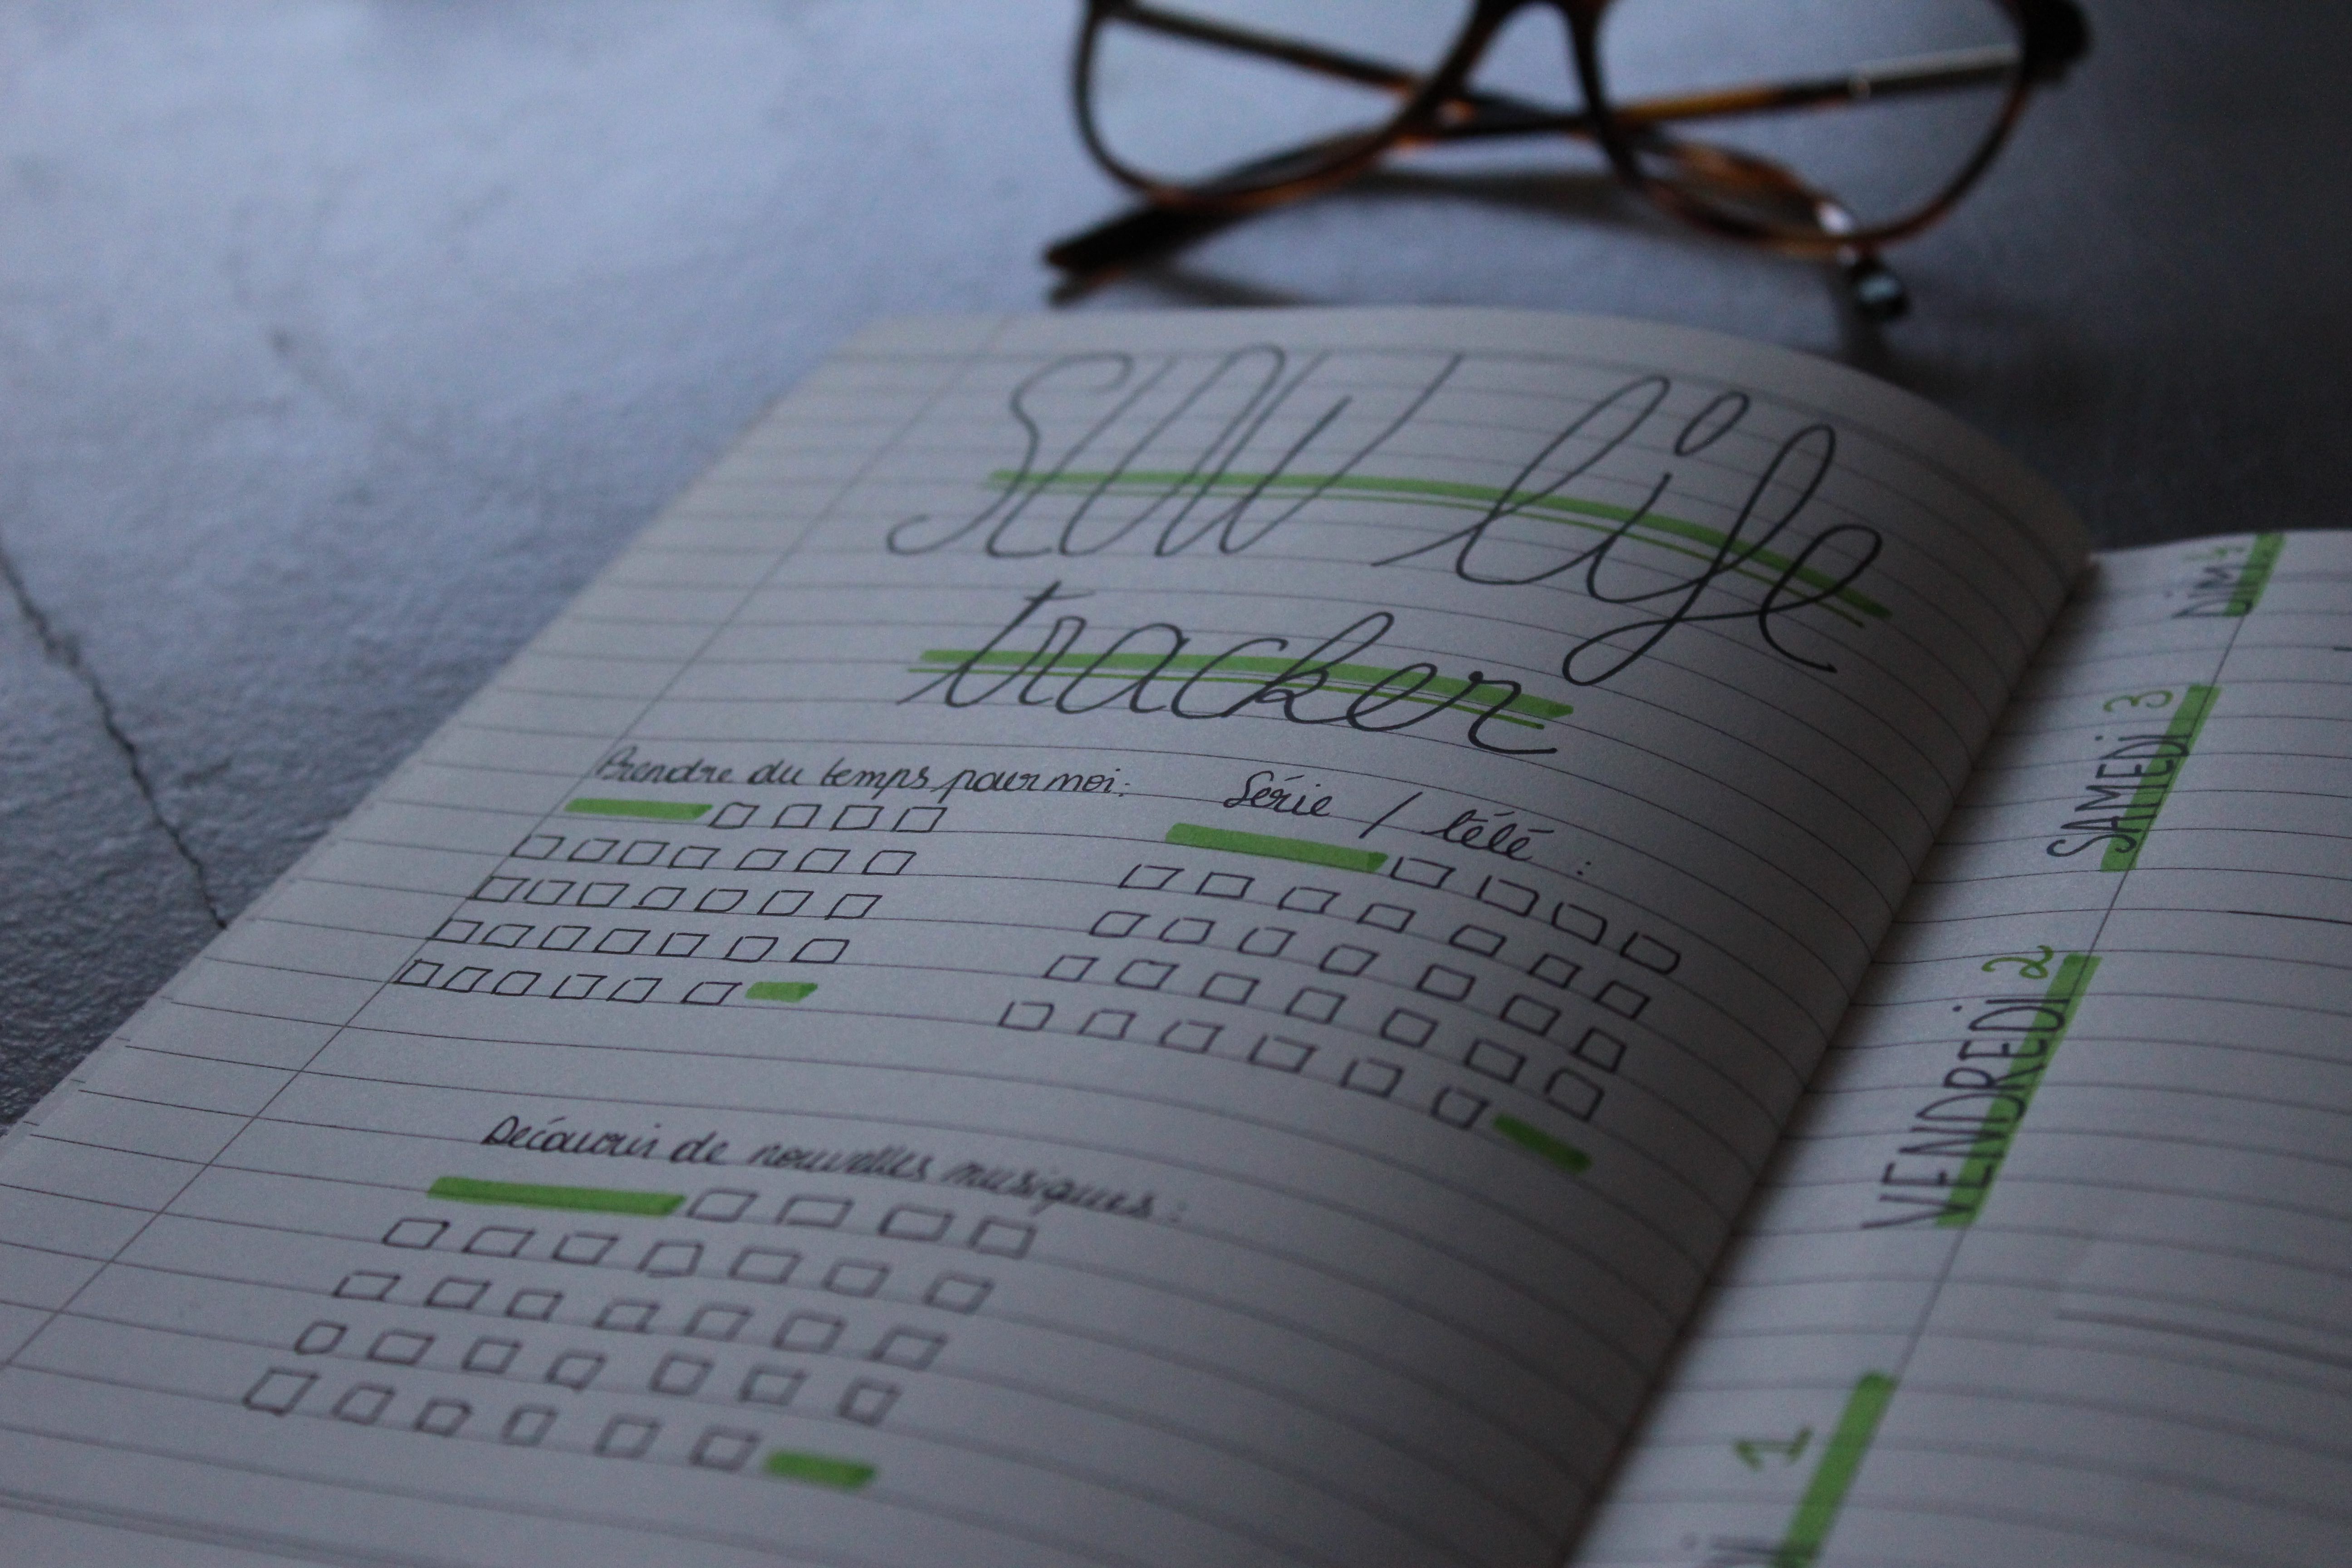 SLOW life
tracker
Prendre du temps pour moi:
Série / télé :
Découvrir de nouvelles musiques :
1
VENDREDI 2
SAMEDI 3
DIM 4